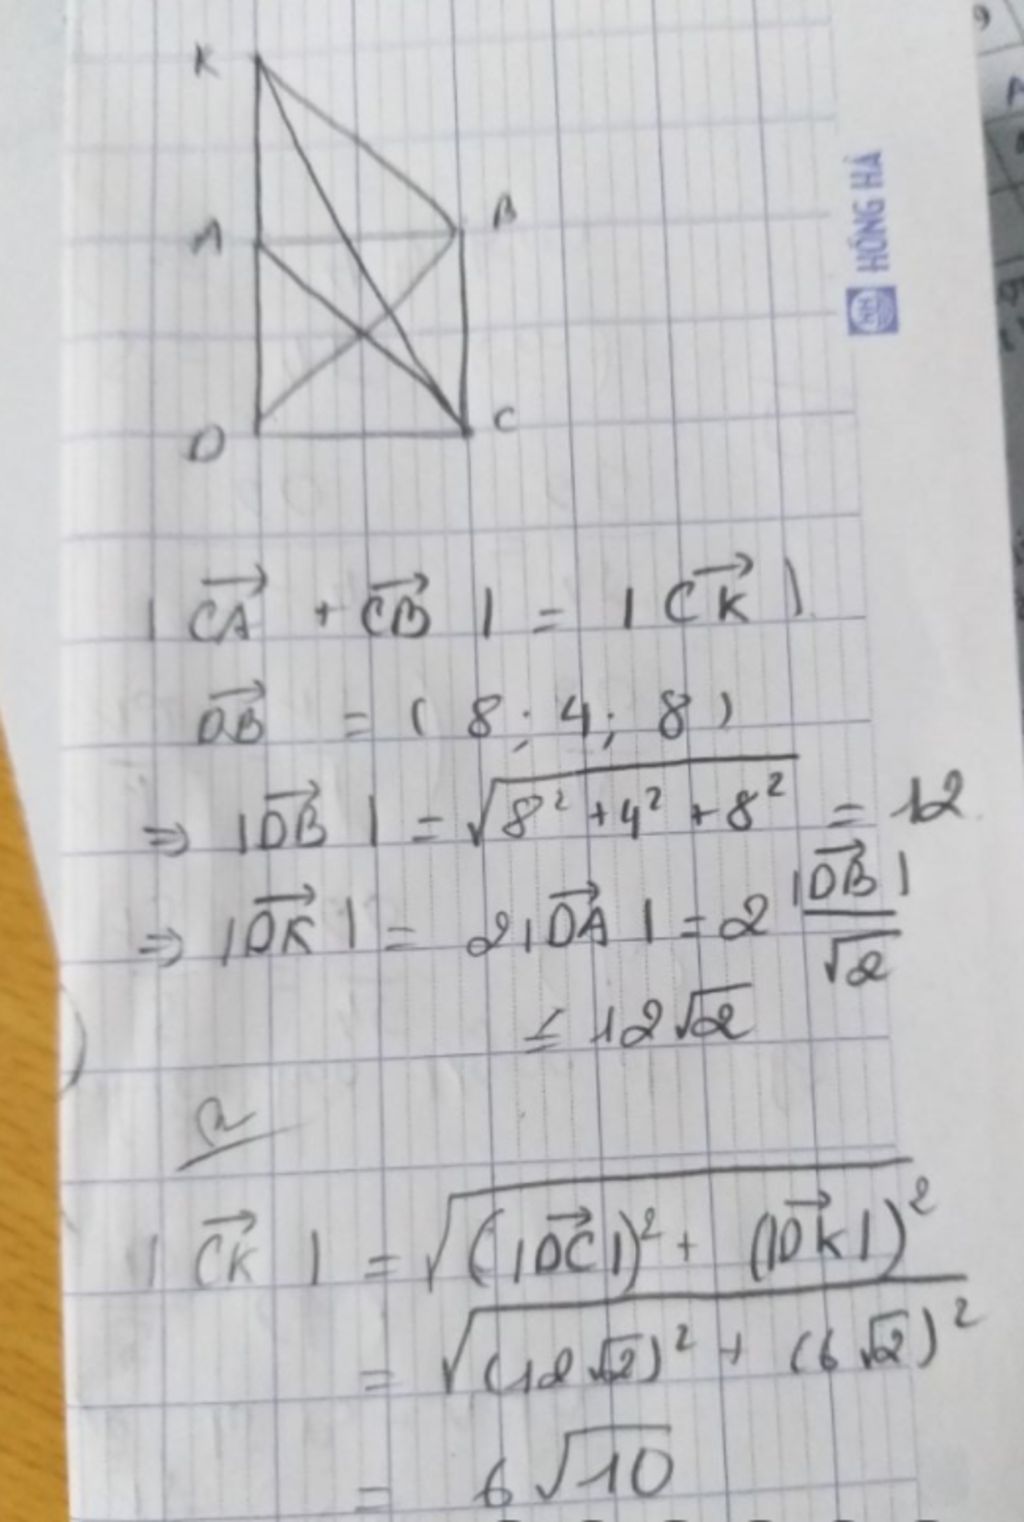 K
A B
D C
HỒNG HÀ
|\overrightarrow{CA} + \overrightarrow{CB}| = |\overrightarrow{CK}|
\overrightarrow{DB} = (8; 4; 8)
⇒ |\overrightarrow{DB}| = \sqrt{8² + 4² + 8²} = 12
⇒ |\overrightarrow{DK}| = 2|\overrightarrow{DA}| = 2 \frac{|\overrightarrow{DB}|}{\sqrt{2}}
= 12\sqrt{2}
|\overrightarrow{CK}| = \sqrt{(|\overrightarrow{DC}|)² + (|\overrightarrow{DK}|)²}
= \sqrt{(12\sqrt{2})² + (6\sqrt{2})²}
= 6\sqrt{10}